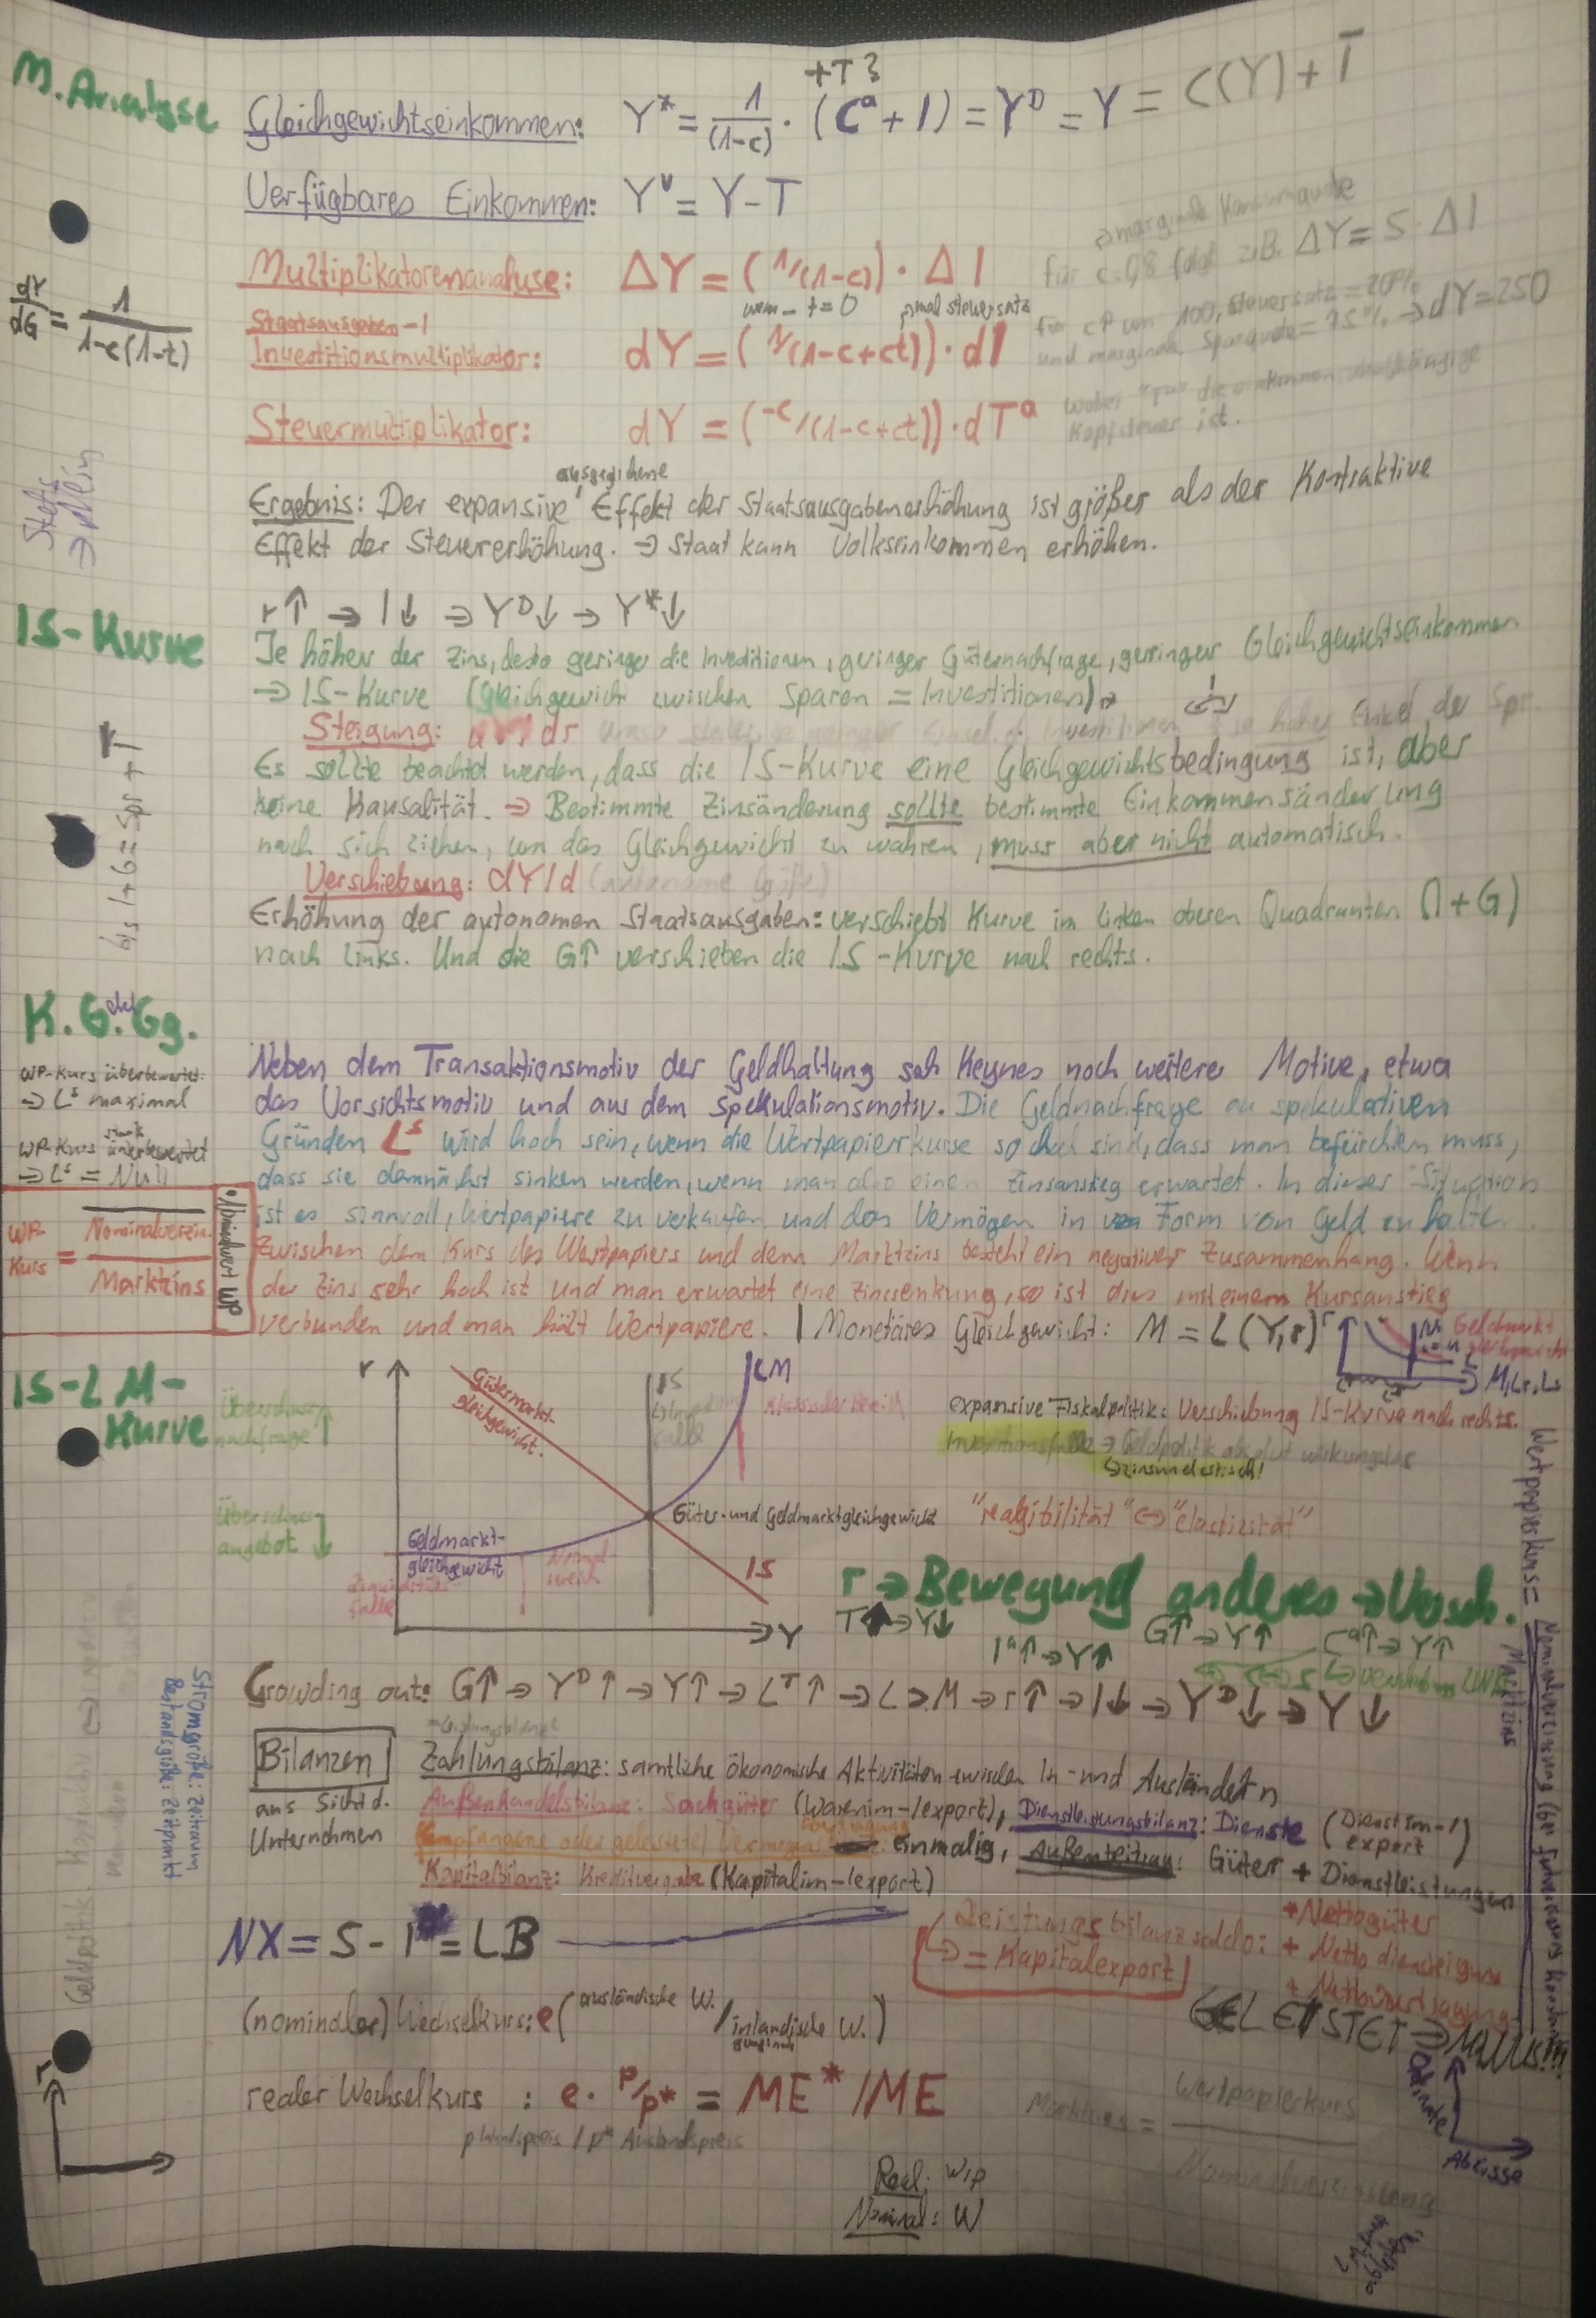 M. Analyse
+T ?
Gleichgewichtseinkommen: Y* = 1/(1-c) · (Cᵃ + I) = Yᴰ = Y = C(Y) + T̄
Verfügbares Einkommen: Yᵛ = Y - T
⇒ marginale Konsumquote
Multiplikatorenanalyse: ΔY = (1/(1-c)) · ΔI
für c=0,8 folgt z.B. ΔY = 5 · ΔI
dY/dG = 1/(1-c(1-t))
wenn t=0
mal steuersatz
Staatsausgaben-/
Investitionsmultiplikator: dY = (1/(1-c+ct)) · dI
für G↑ um 100, Steuersatz = 20%
und marginale Sparquote = 25% → dY = 250
Steuermultiplikator: dY = (-c/(1-c+ct)) · dTᵃ
wobei "Tᵃ" die einkommensunabhängige
Kopfsteuer ist.
Stets
⇒ klein
ausgeglichene
Ergebnis: Der expansive Effekt der Staatsausgabenerhöhung ist größer als der Kontraktive
Effekt der Steuererhöhung. ⇒ Staat kann Volkseinkommen erhöhen.
IS-Kurve
r↑ → I↓ ⇒ Yᴰ↓ → Y*↓
Je höher der Zins, desto geringer die Investitionen, geringer Güternachfrage, gerringer Gleichgewichtseinkommen
⇒ IS-Kurve (Gleichgewicht zwischen Sparen = Investitionen)
Steigung: dY/dr
Es sollte beachtet werden, dass die IS-Kurve eine Gleichgewichtsbedingung ist, aber
keine Kausalität. ⇒ Bestimmte Zinsänderung sollte bestimmte Einkommensänderung
nach sich ziehen, um das Gleichgewicht zu wahren, muss aber nicht automatisch.
Verschiebung: dY/d (autonome Größe)
bis I+G = Spr + T
Erhöhung der autonomen Staatsausgaben: verschiebt Kurve im linken oberen Quadranten (I+G)
nach Links. Und die G↑ verschieben die IS-Kurve nach rechts.
K. G. Gg.
WP-Kurs überbewertet:
⇒ Lˢ maximal
WP-Kurs stark unterbewertet
⇒ Lˢ = Null
WP-Kurs = Nominalverzin. / Marktzins
Neben dem Transaktionsmotiv der Geldhaltung sah Keynes noch weitere Motive, etwa
das Vorsichtsmotiv und aus dem Spekulationsmotiv. Die Geldnachfrage aus spekulativen
Gründen Lˢ wird hoch sein, wenn die Wertpapierkurse so hoch sind, dass man befürchten muss,
dass sie demnächst sinken werden, wenn man also einen Zinsanstieg erwartet. In dieser Situation
ist es sinnvoll, Wertpapiere zu verkaufen und das Vermögen in Form von Geld zu halte
Zwischen dem Kurs des Wertpapiers und dem Marktzins besteht ein negativer Zusammenhang. Wenn
der Zins sehr hoch ist und man erwartet eine Zinssenkung, so ist dies mit einem Kursanstieg
verbunden und man hält Wertpapiere. | Monetäres Gleichgewicht: M = L (Y,r)
r
Geldmarkt
M, Lᴛ, Ls
IS-LM-Kurve
Überschussnachfrage ↑
Überschussangebot ↓
r
Gütermarktgleichgewicht.
IS
LM
Klassischer Bereich
Geldmarktgleichgewicht
Liquiditätsfalle
Normalbereich
Güter- und Geldmarktgleichgewicht
IS
Y
expansive Fiskalpolitik: Verschiebung IS-Kurve nach rechts.
Investitionsfalle ⇒ Geldpolitik absolut wirkungslos
↳ zinsunelastisch!
"reagibilität" ⇔ "elastizität"
r ⇒ Bewegung anderes ⇒ Versch.
T↑ ⇒ Y↓
Iᵃ↑ → Y↑
G↑ → Y↑
Cᵃ↑ → Y↑
Crowding out: G↑ ⇒ Yᴰ↑ → Y↑ → Lᵀ↑ → L>M → r↑ → I↓ → Yᴰ↓ → Y↓
Stromgröße: Zeitraum
Bestandsgröße: Zeitpunkt
Bilanzen
aus Sicht d.
Unternehmen
Zahlungsbilanz: sämtliche ökonomische Aktivitäten zwischen In- und Ausländern
Außenhandelsbilanz: Sachgüter (Warenim-/export), Dienstleistungsbilanz: Dienste (Dienstim-/export)
(empfangene oder geleistete) Vermögensübertragung: einmalig, Außenbeitrag: Güter + Dienstleistungen
Kapitalbilanz: Kreditvergabe (Kapitalim-/export)
NX = S - I = LB
Leistungsbilanzsaldo:
↳ = Kapitalexport
+ Nettogüter
+ Netto
+ Nettoübertragung
GELEISTET ⇒ MINUS!!!
(nominaler) Wechselkurs: e (ausländische W. / inländische W.)
realer Wechselkurs : e · P/P* = ME* / ME
P Inlandspreis / P* Auslandspreis
Marktzins = Wertpapierkurs / Nominalverzinsung
Real: W/P
Nominal: W
r
Ordinate
Abzisse
Wertpapierkurs = Nominalverzinsung / Marktzins